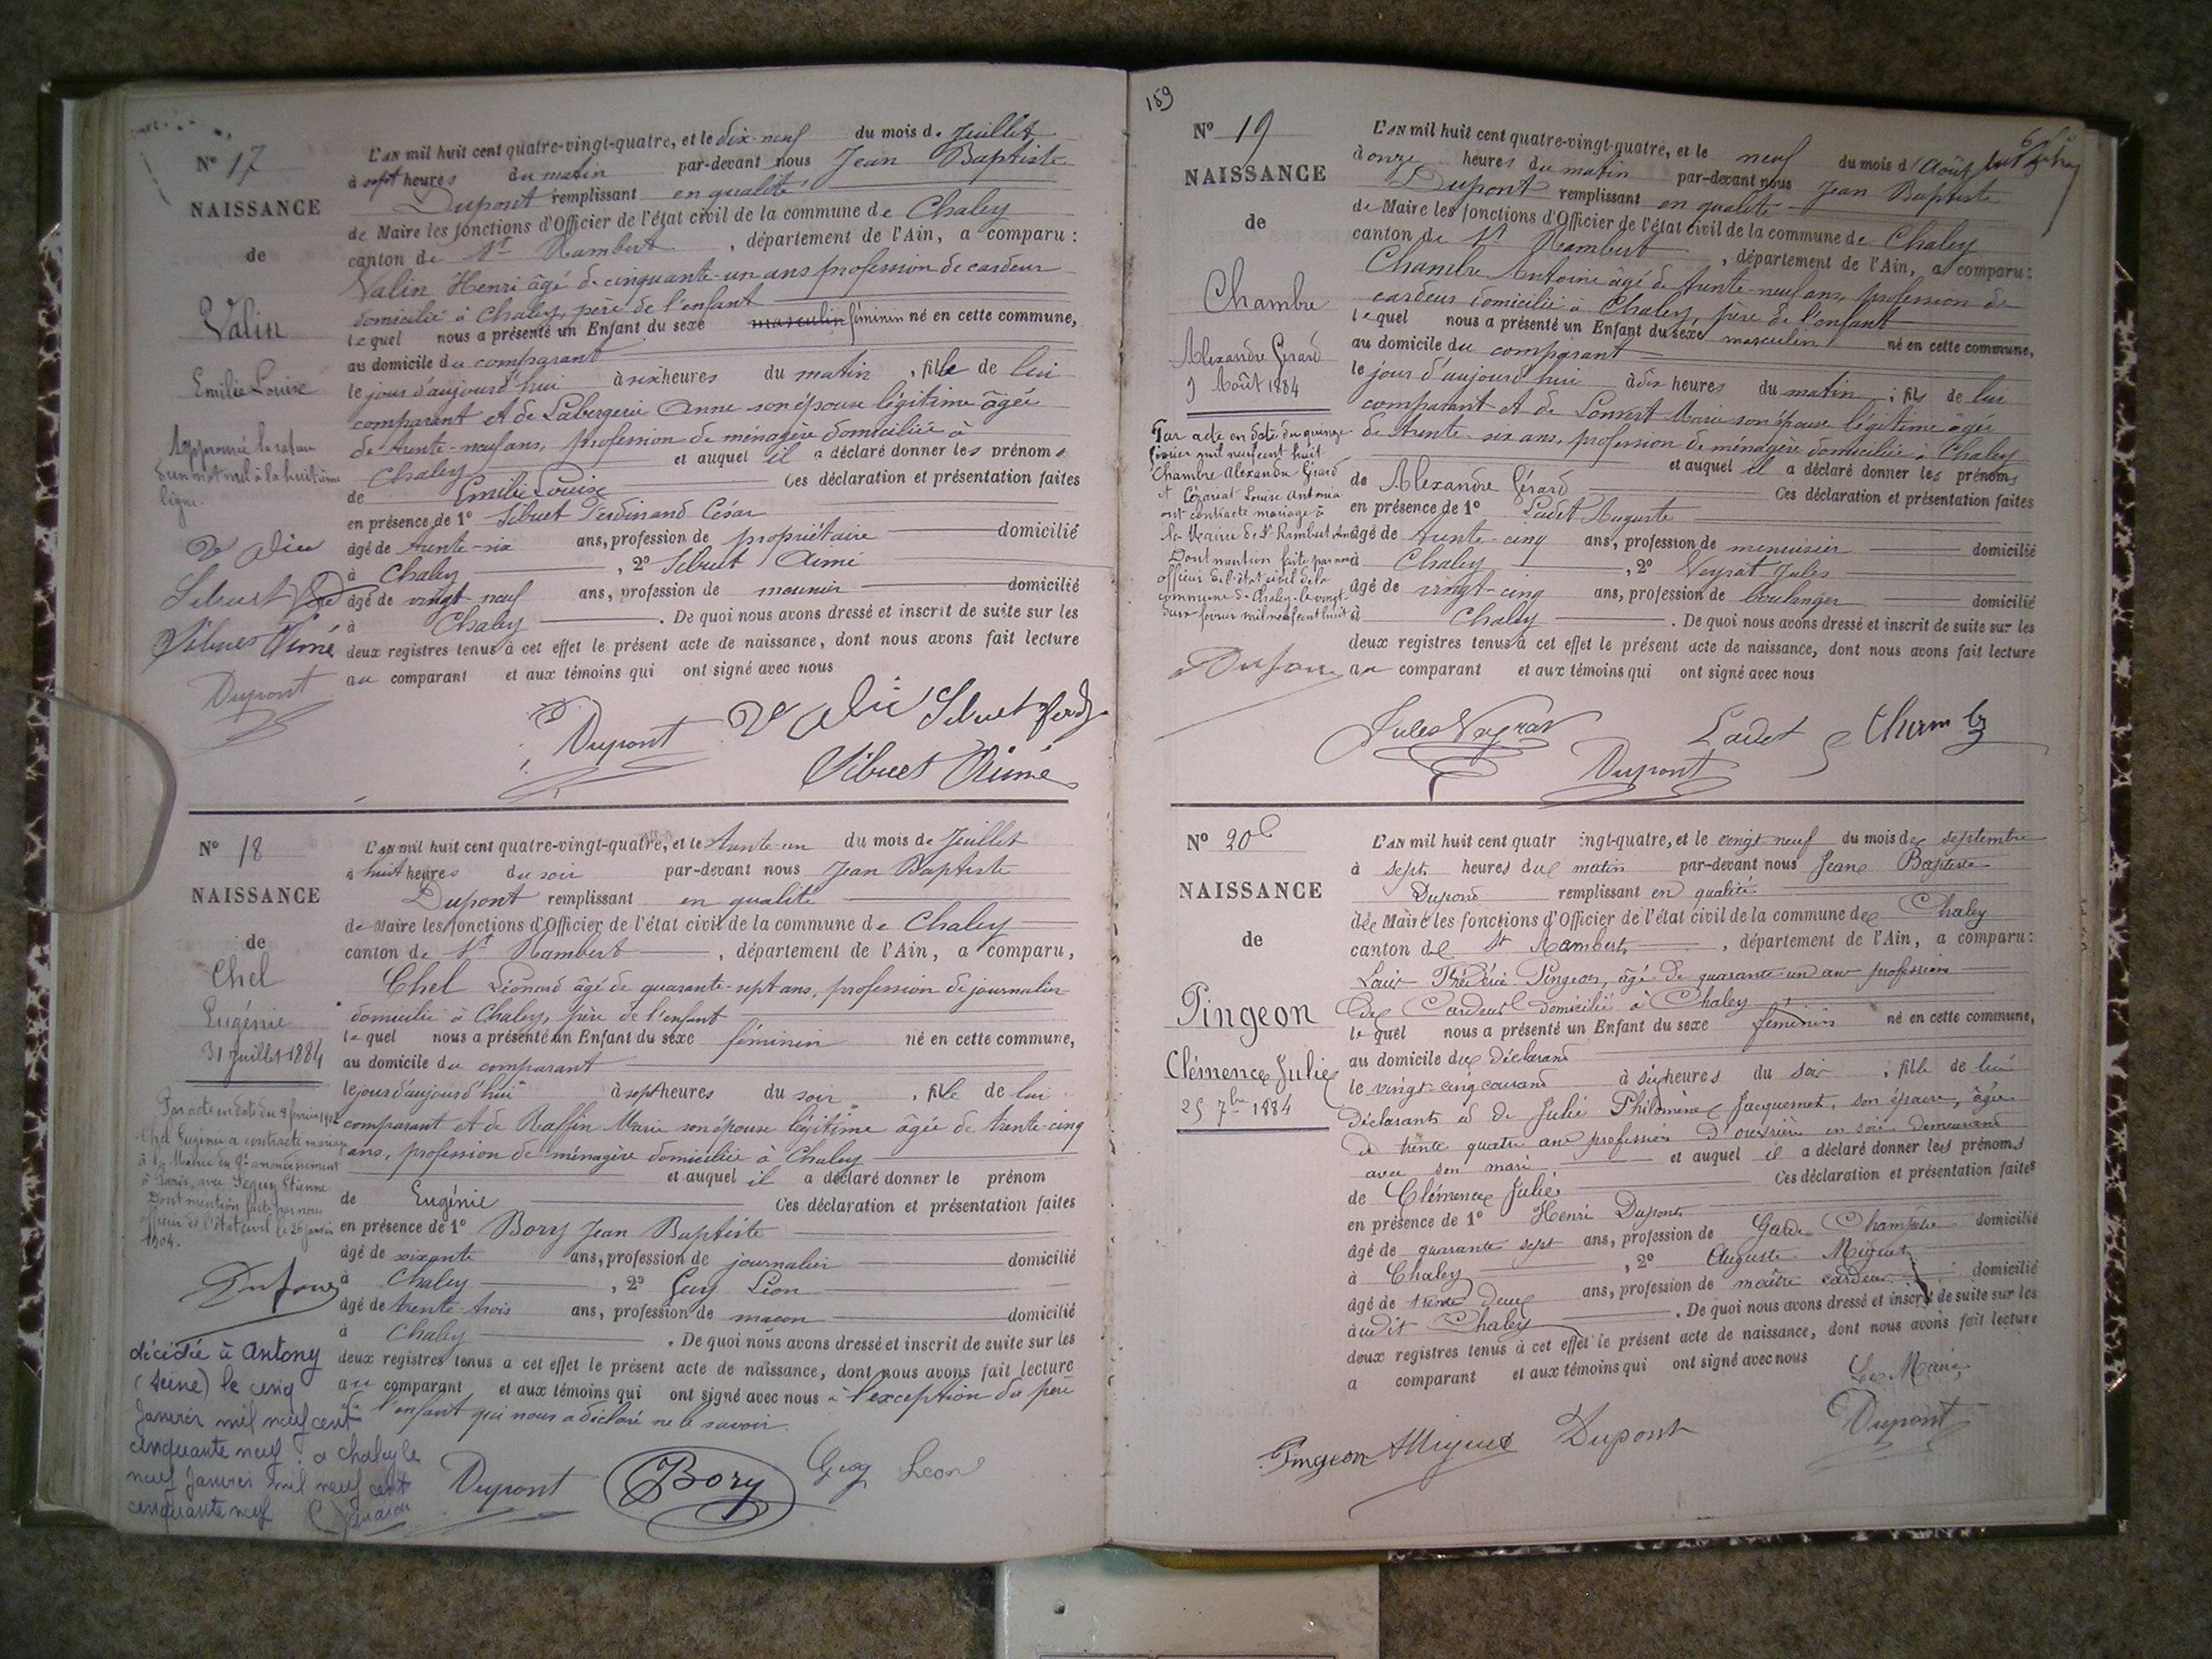 N° 17
NAISSANCE
de
Valin
Emilie Louise
Approuvé la rature
d'un mot nul à la huitième
ligne.
Sibuet Ferd
Sibuet Aimé
Dupont
L'AN mil huit cent quatre-vingt-quatre, et le dix-neuf du mois de Juillet
à sept heures du matin par-devant nous Jean Baptiste
Dupont remplissant en qualité
de Maire les fonctions d'Officier de l'état civil de la commune de Chaley
canton de St Rambert, département de l'Ain, a comparu :
Valin Henri âgé de cinquante-un ans profession de cardeur
domicilié à Chaley, père de l'enfant
lequel nous a présenté un Enfant du sexe masculin féminin né en cette commune,
au domicile du comparant
le jour d'aujourd'hui à six heures du matin, fille de lui
comparant et de Labergerie Anne son épouse légitime âgée
de trente-neuf ans, profession de ménagère domiciliée à
Chaley et auquel il a déclaré donner les prénoms
de Emilie Louise Ces déclaration et présentation faites
en présence de 1° Sibuet Ferdinand César
âgé de trente-six ans, profession de propriétaire domicilié
à Chaley, 2° Sibuet Aimé
âgé de vingt-neuf ans, profession de meunier domicilié
à Chaley. De quoi nous avons dressé et inscrit de suite sur les
deux registres tenus à cet effet le présent acte de naissance, dont nous avons fait lecture
au comparant et aux témoins qui ont signé avec nous
Dupont Sibuet Ferd
Sibuet Aimé
N° 18
NAISSANCE
de
Chel
Eugénie
31 Juillet 1884
Par acte en date du 8 février
Chel Eugénie a contracté mariage
à la Mairie du arrondissement
à Paris, avec Seguy Etienne
Dont mention faite par nous
officier de l'état civil le 26
1904.
Dufour
décédée à Antony
(Seine) le cinq
Janvier mil neuf cent
cinquante neuf. à Chaley le
neuf Janvier mil neuf cent
cinquante neuf
L'AN mil huit cent quatre-vingt-quatre, et le trente-un du mois de Juillet
à huit heures du soir par-devant nous Jean Baptiste
Dupont remplissant en qualité
de Maire les fonctions d'Officier de l'état civil de la commune de Chaley
canton de St Rambert, département de l'Ain, a comparu,
Chel Léonard âgé de quarante-sept ans, profession de journalier
domicilié à Chaley, père de l'enfant
lequel nous a présenté un Enfant du sexe féminin né en cette commune,
au domicile du comparant
le jour d'aujourd'hui à sept heures du soir, fille de lui
comparant et de Raffin Marie son épouse légitime âgée de trente-cinq
ans, profession de ménagère domiciliée à Chaley
et auquel il a déclaré donner le prénom
de Eugénie Ces déclaration et présentation faites
en présence de 1° Bory Jean Baptiste
âgé de soixante ans, profession de journalier domicilié
à Chaley, 2° Guy Léon
âgé de trente-trois ans, profession de maçon domicilié
à Chaley. De quoi nous avons dressé et inscrit de suite sur les
deux registres tenus à cet effet le présent acte de naissance, dont nous avons fait lecture
au comparant et aux témoins qui ont signé avec nous à l'exception du père
de l'enfant qui nous a déclaré ne le savoir.
Dupont Bory Guy Léon
159
N° 19
NAISSANCE
de
Chambre
Alexandre Gérard
9 Août 1884
Par acte en date du quinze
février mil neuf cent huit
Chambre Alexandre Gérard
et Cézariat Louise Antonia
ont contracté mariage à
la Mairie de St Rambert Ain
Dont mention faite par nous
officier de l'état civil de la
commune de Chaley le vingt-
deux février mil neuf cent huit
Dufour
L'AN mil huit cent quatre-vingt-quatre, et le neuf du mois d'Août
à onze heures du matin par-devant nous Jean Baptiste
Dupont remplissant en qualité
de Maire les fonctions d'Officier de l'état civil de la commune de Chaley
canton de St Rambert, département de l'Ain, a comparu :
Chambre Antoine âgé de trente-neuf ans, profession de
cardeur domicilié à Chaley, père de l'enfant
lequel nous a présenté un Enfant du sexe masculin né en cette commune,
au domicile du comparant
le jour d'aujourd'hui à dix heures du matin ; fils de lui
comparant et de Marie son épouse légitime âgée
de trente-six ans, profession de ménagère domiciliée à Chaley
et auquel il a déclaré donner les prénoms
de Alexandre Gérard Ces déclaration et présentation faites
en présence de 1° Ladet Auguste
âgé de trente-cinq ans, profession de menuisier domicilié
à Chaley, 2° Veyrat Jules
âgé de vingt-cinq ans, profession de boulanger domicilié
à Chaley. De quoi nous avons dressé et inscrit de suite sur les
deux registres tenus à cet effet le présent acte de naissance, dont nous avons fait lecture
au comparant et aux témoins qui ont signé avec nous
Jules Veyrat Ladet
Dupont
N° 20
NAISSANCE
de
Pingeon
Clémence Julie
25 7bre 1884
L'AN mil huit cent quatr ingt-quatre, et le vingt neuf du mois de septembre
à sept heures du matin par-devant nous Jean Baptiste
Dupond remplissant en qualité
de Maire les fonctions d'Officier de l'état civil de la commune de Chaley
canton de St Rambert, département de l'Ain, a comparu :
Louis Frédéric Pingeon, âgé de quarante-un ans profession
de Cardeur domicilié à Chaley
lequel nous a présenté un Enfant du sexe féminin né en cette commune,
au domicile du déclarant
le vingt-cinq courant à six heures du soir, fille de lui
Déclarants et de Julie Philomène Jacquemet, son épouse, âgée
de trente quatre ans profession d'ouvrière en soie demeurant
avec son mari et auquel il a déclaré donner les prénoms
de Clémence Julie Ces déclaration et présentation faites
en présence de 1° Henri Dupont
âgé de quarante sept ans, profession de Garde Champêtre domicilié
à Chaley, 2° Auguste Miguet
âgé de trente deux ans, profession de maître cardeur domicilié
audit Chaley. De quoi nous avons dressé et inscrit de suite sur les
deux registres tenus à cet effet le présent acte de naissance, dont nous avons fait lecture
a comparant et aux témoins qui ont signé avec nous
Le Maire
Pingeon AMiguet Dupont Dupont